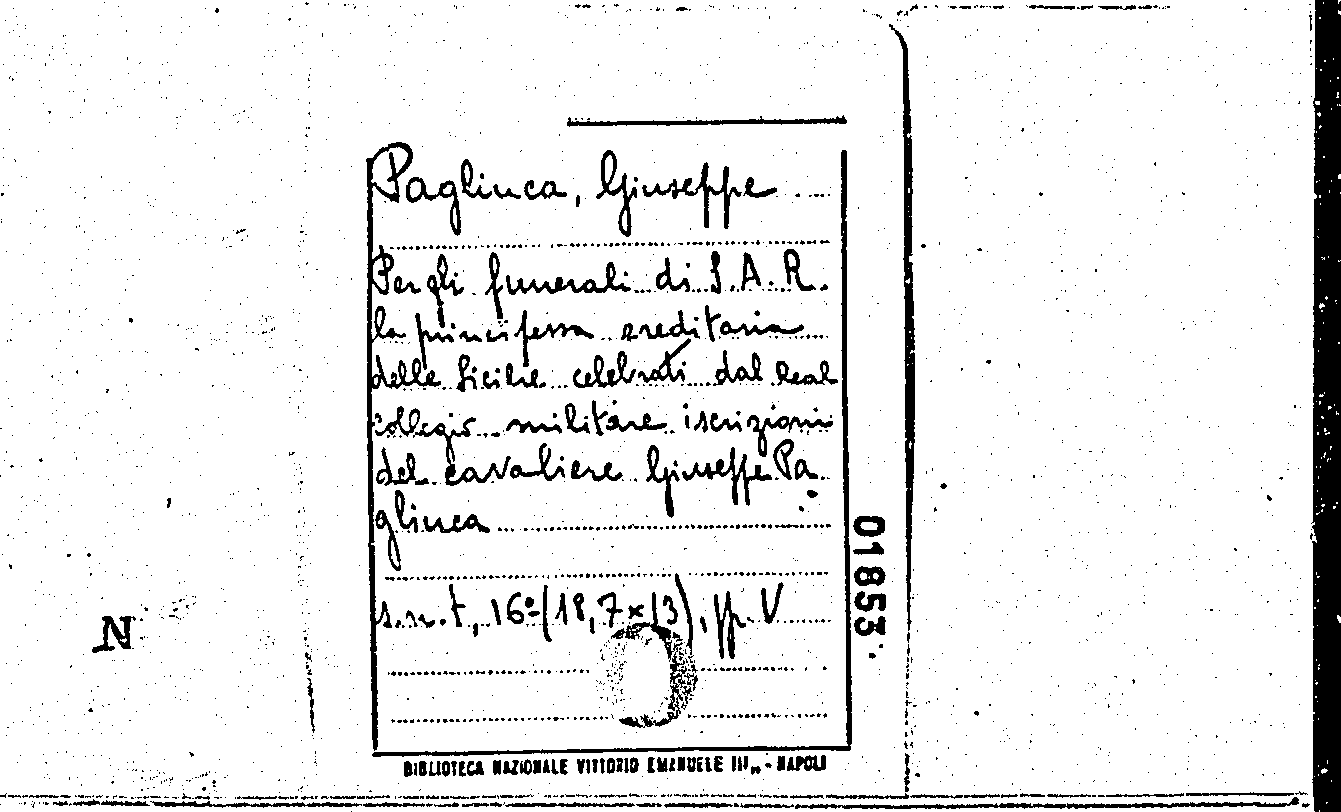 Pagliuca, Giuseppe
Per gli funerali di S. A. R.
la principessa ereditaria
delle Sicilie celebrati dal Real
collegio militare iscrizioni
del cavaliere Giuseppe Pa
gliuca
s.n.t, 16º (18,7×13), pp. V
01853
N
BIBLIOTECA NAZIONALE VITTORIO EMANUELE III„ - NAPOLI